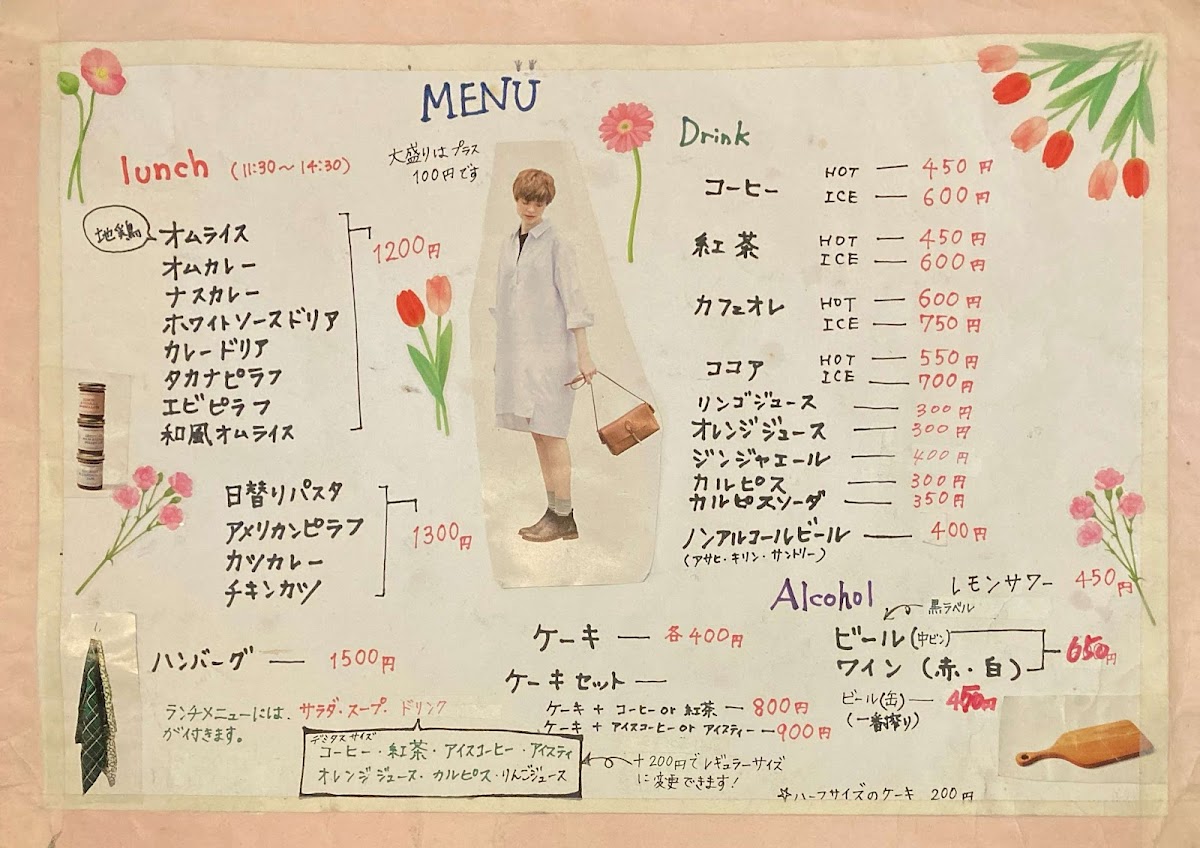 MENU
lunch (11:30〜14:30)
大盛りはプラス
100円です
地鶏
オムライス
オムカレー
ナスカレー
ホワイトソースドリア
カレードリア
タカナピラフ
エビピラフ
和風オムライス
1200円
日替りパスタ
アメリカンピラフ
カツカレー
チキンカツ
1300円
ハンバーグ — 1500円
ランチメニューには、サラダ・スープ・ドリンク
が付きます。
デミタスサイズ
コーヒー・紅茶・アイスコーヒー・アイスティ
オレンジジュース・カルピス・りんごジュース
+200円でレギュラーサイズ
に変更できます!
ケーキ — 各400円
ケーキセット —
ケーキ + コーヒー or 紅茶 — 800円
ケーキ + アイスコーヒー or アイスティー — 900円
☆ハーフサイズのケーキ 200円
Drink
コーヒー HOT — 450円
ICE — 600円
紅茶 HOT — 450円
ICE — 600円
カフェオレ HOT — 600円
ICE — 750円
ココア HOT — 550円
ICE — 700円
リンゴジュース — 300円
オレンジジュース — 300円
ジンジャエール — 400円
カルピス — 300円
カルピスソーダ — 350円
ノンアルコールビール — 400円
(アサヒ・キリン・サントリー)
Alcohol
レモンサワー 450円
黒ラベル
ビール(中ビン)
ワイン(赤・白)
650円
ビール(缶) — 450円
(一番搾り)